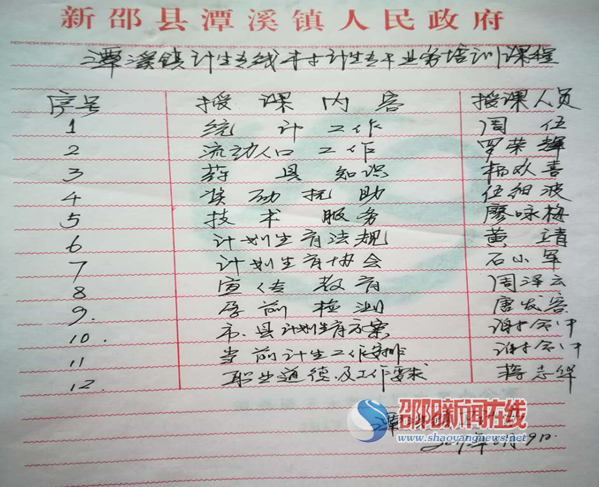 新邵县潭溪镇人民政府
潭溪镇计生专线村计生专干业务培训课程
序号 授课内容 授课人员
1 统计工作 周伍
2 流动人口工作 罗荣辉
3 药具知识 杨欢喜
4 奖励扶助 伍细波
5 技术服务 廖咏梅
6 计划生育法规 黄靖
7 计划生育协会 石小军
8 宣传教育 周泽云
9. 孕前检测 唐发容
10. 市、县计划生育方案
11 当前计生工作安排
12. 职业道德及工作要求 蒋志
潭
邵阳新闻在线
www.shaoyangnews.net